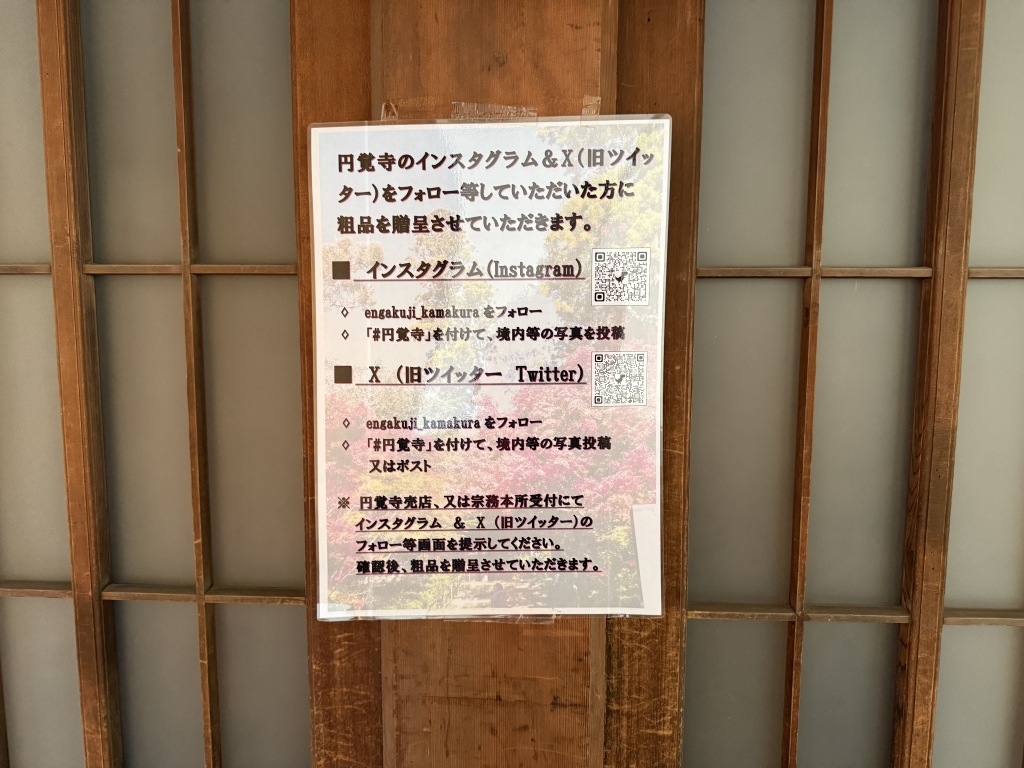 円覚寺のインスタグラム&X(旧ツイッ
ター)をフォロー等していただいた方に
粗品を贈呈させていただきます。
■ インスタグラム(Instagram)
◇ engakuji_kamakura をフォロー
◇ 「#円覚寺」を付けて、境内等の写真を投稿
■ X (旧ツイッター Twitter)
◇ engakuji_kamakura をフォロー
◇ 「#円覚寺」を付けて、境内等の写真投稿
又はポスト
※ 円覚寺売店、又は宗務本所受付にて
インスタグラム & X (旧ツイッター)の
フォロー等画面を提示してください。
確認後、粗品を贈呈させていただきます。